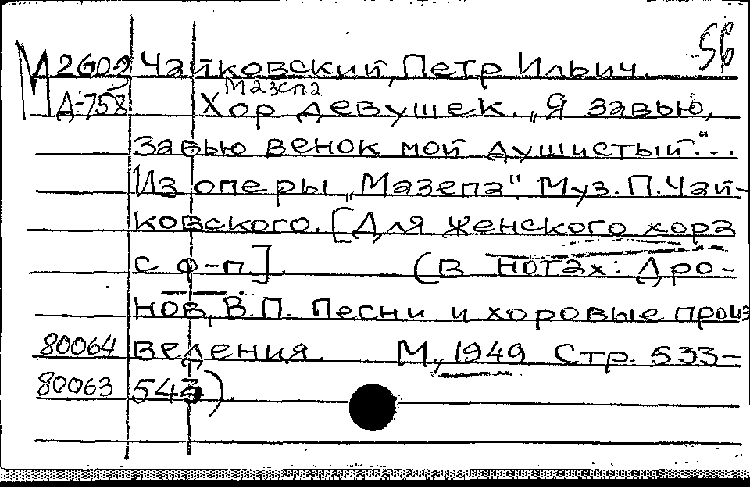 56
М 2609 Чайковский, Петр Ильич.
Мазепа
Д-758 Хор девушек. „Я завью,
завью венок мой душистый"...
Из оперы „Мазепа". Муз. П. Чай-
ковского. [Для женского хора
с ф-п.] (В нотах: Дро-
нов, В.П. Песни и хоровые произ
80064 ведения. М., 1949. Стр. 533-
80063 543)